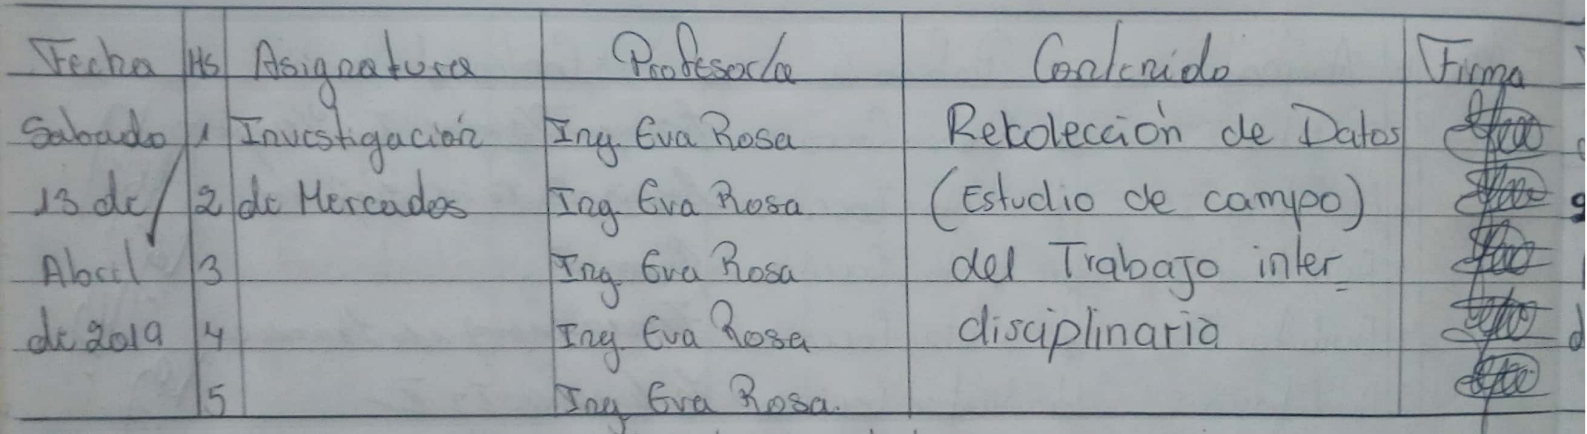 Fecha Hs Asignatura Profesor/a Contenido Firma
Sabado 1 Investigación Ing. Eva Rosa Rekolección de Datos
13 de 2 de Mercados Ing. Eva Rosa (Estudio de campo)
Abril 3 Ing. Eva Rosa del Trabajo inter_
de 2019 4 Ing. Eva Rosa disciplinario
5 Ing Eva Rosa.